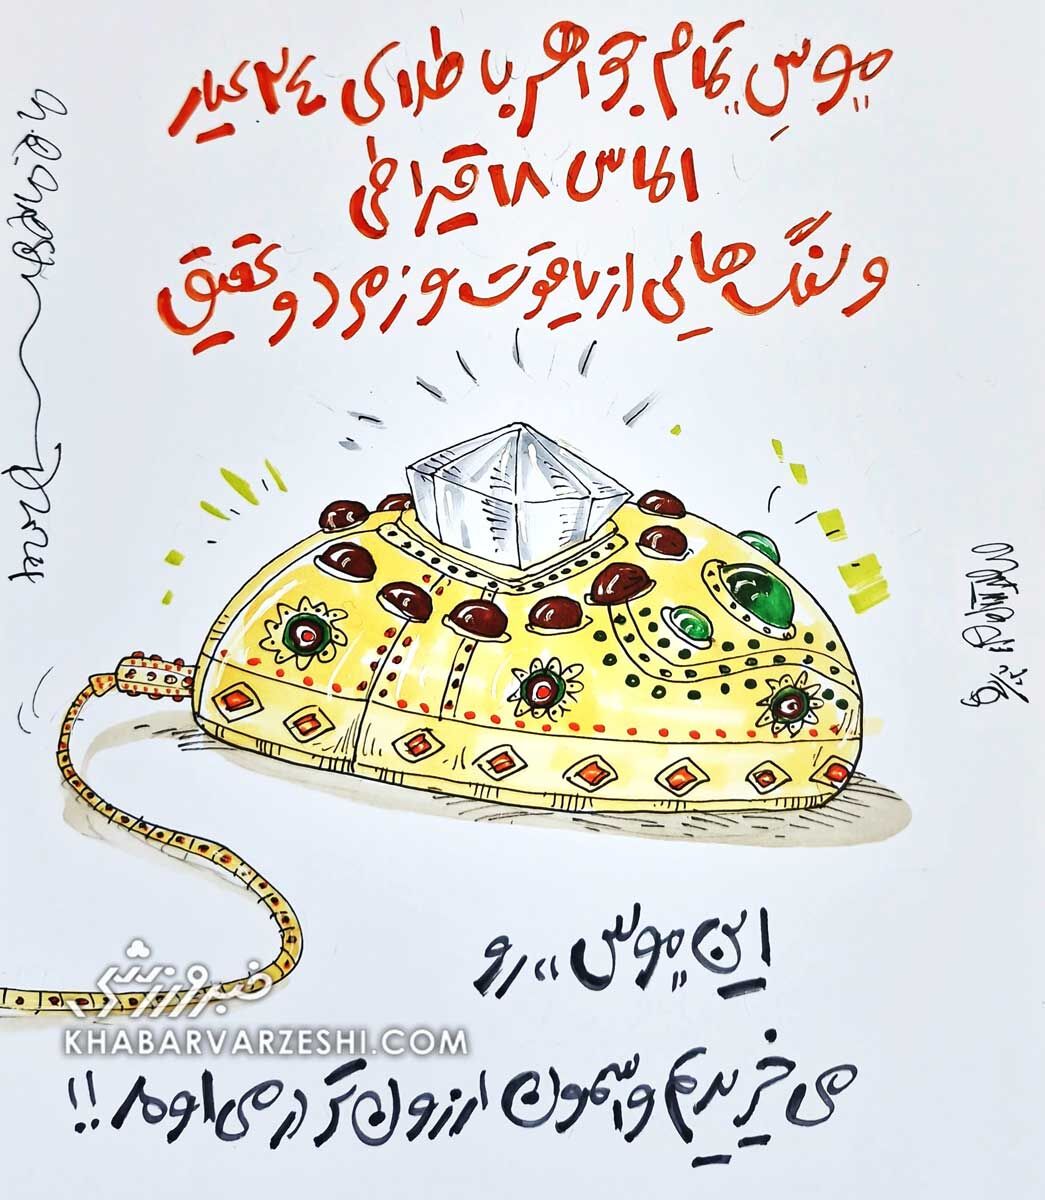 „موس“ تمام جواهر با طلای ۲۴ عیار
الماس ۱۸ قیراطی
و سنگ هایی از یاقوت و زمرد و عقیق
این „موس“ رو
می خریدیم واسمون ارزون تر در می اومد!!
خبر ورزشی
KHABARVARZESHI.COM